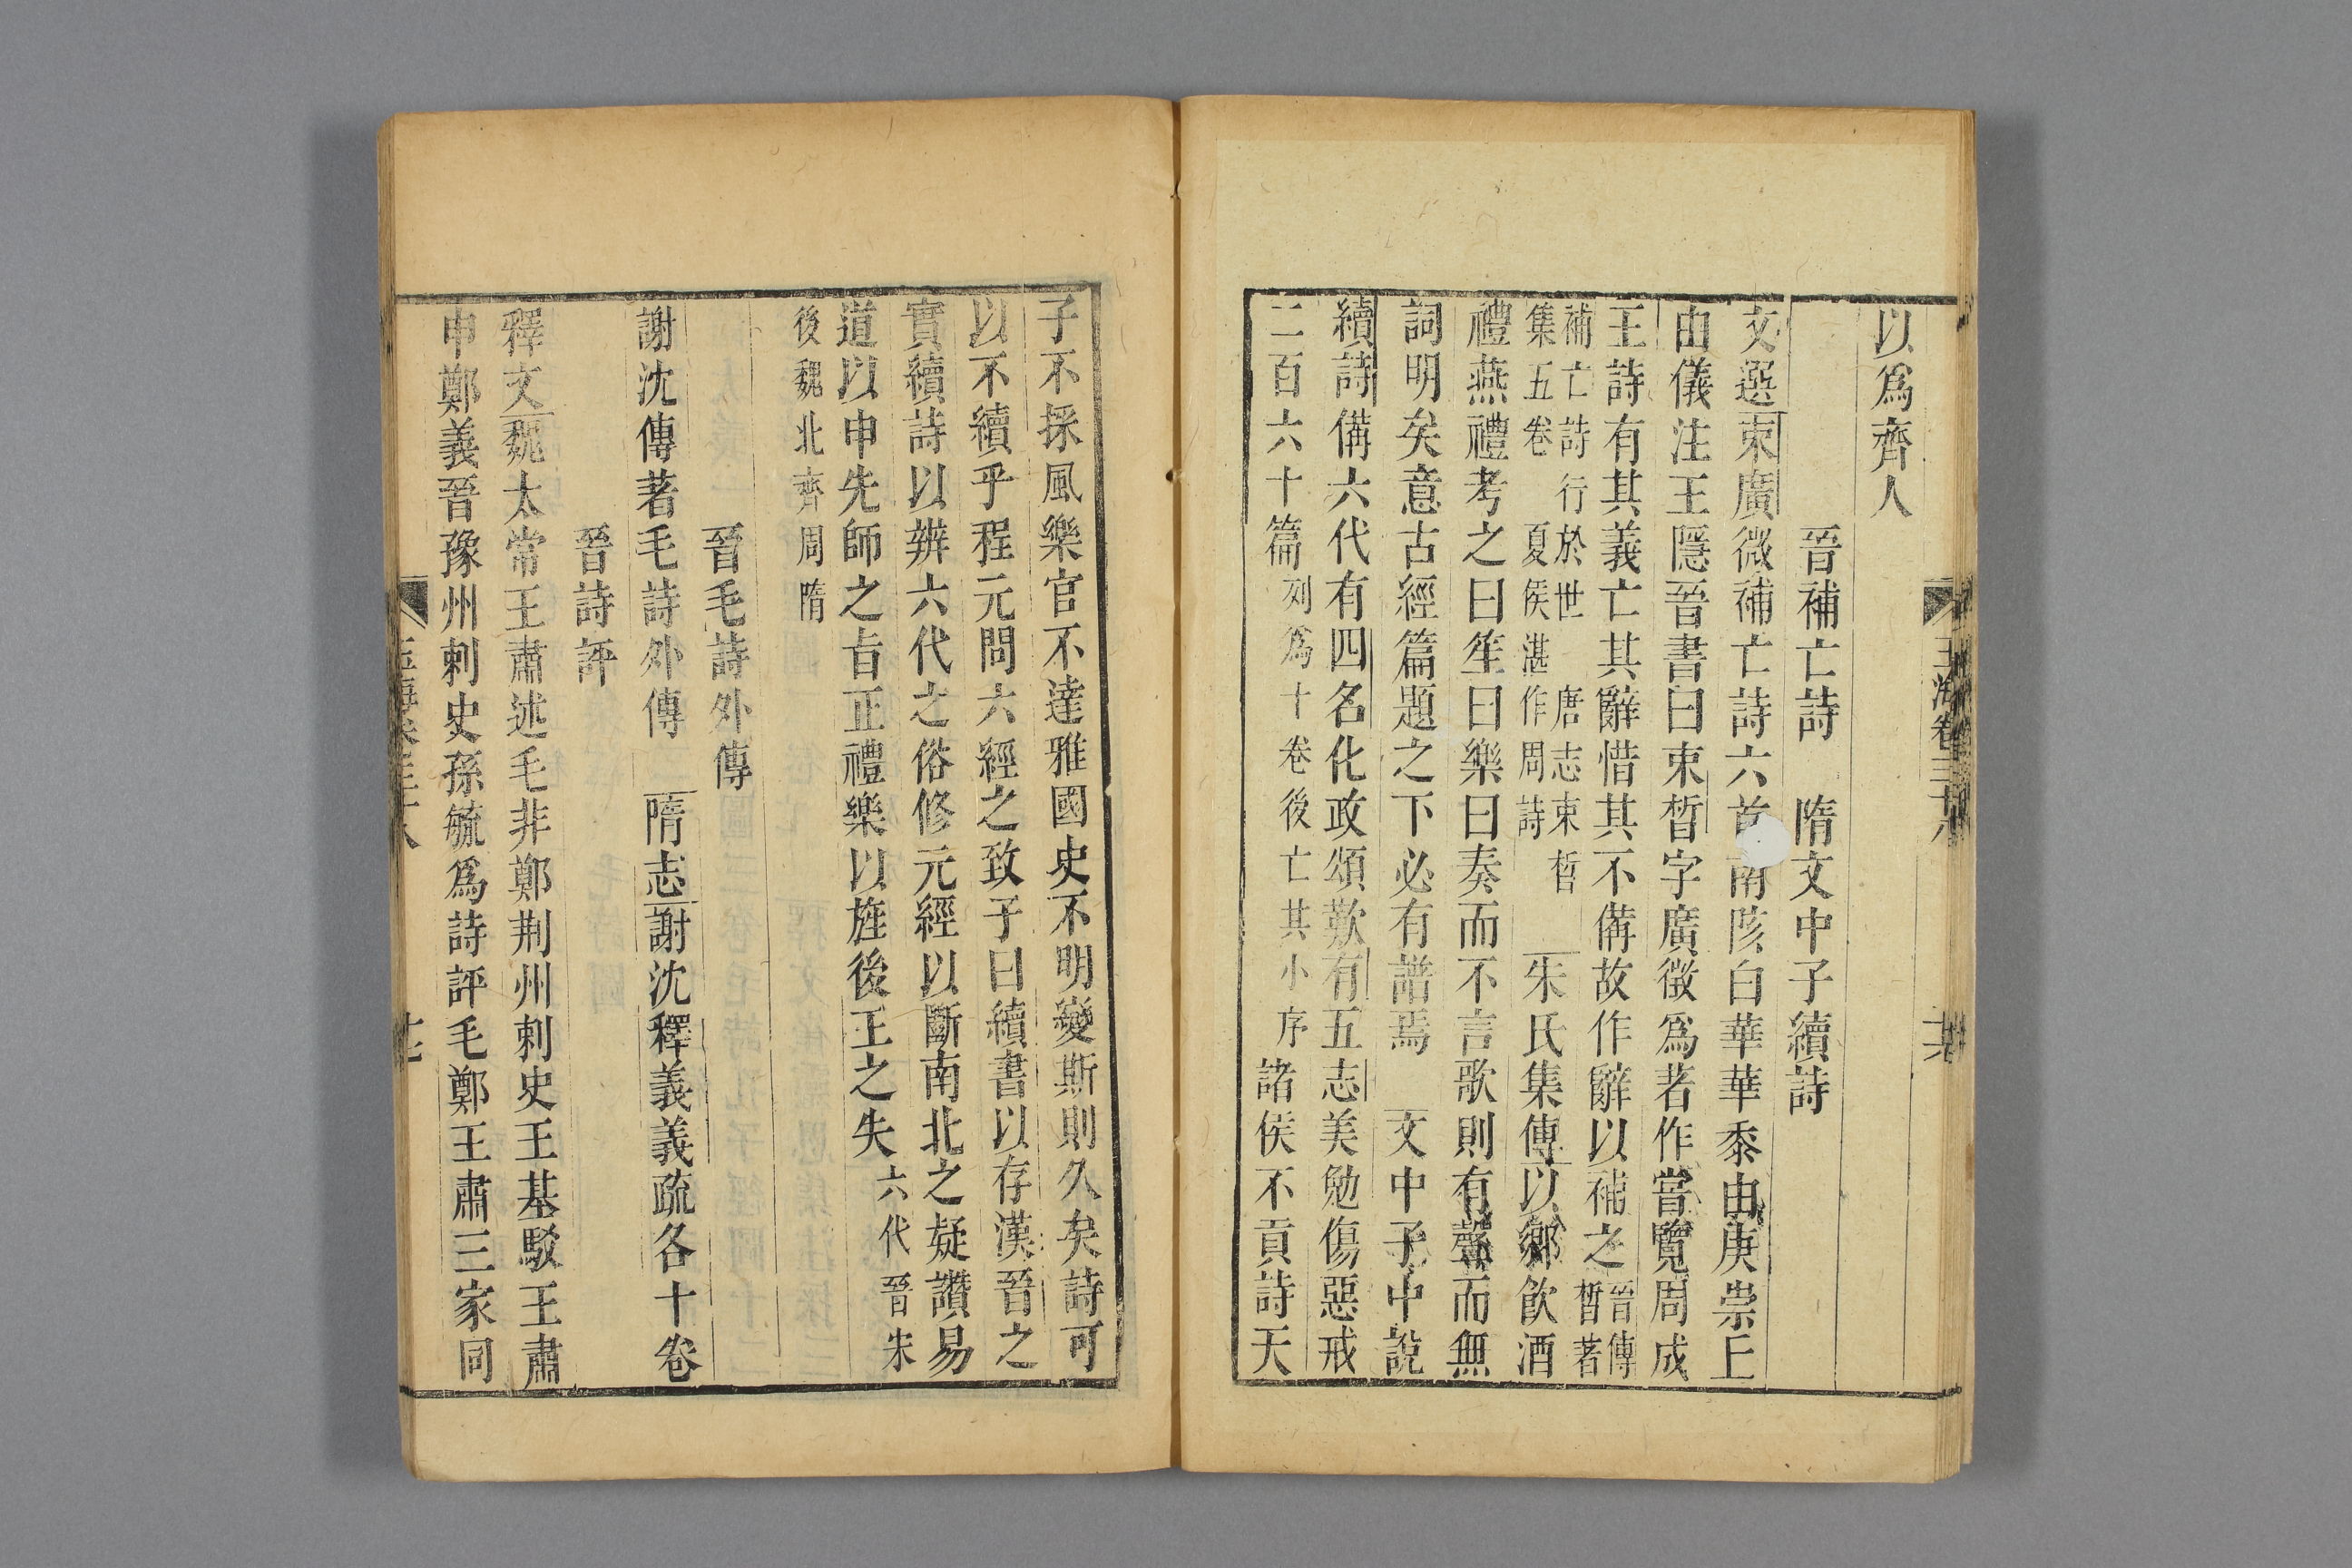 以爲齊人
晉補亡詩　隋文中子續詩
文選束廣微補亡詩六首南陔白華華黍由庚崇丘
由儀注王隱晉書曰束皙字廣微爲著作嘗覽周成
王詩有其義亡其辭惜其不備故作辭以補之晉傳皙著
補亡詩行於世　唐志束皙
集五卷　夏侯湛作周詩　朱氏集傳以鄉飲酒
禮燕禮考之曰笙曰樂曰奏而不言歌則有聲而無
詞明矣意古經篇題之下必有譜焉　文中子中說
續詩備六代有四名化政頌歎有五志美勉傷惡戒
二百六十篇列爲十卷後亡其小序諸侯不貢詩天
子不採風樂官不達雅國史不明變斯則久矣詩可
以不續乎程元問六經之致子曰續書以存漢晉之
實續詩以辨六代之俗修元經以斷南北之疑讚易
道以申先師之旨正禮樂以旌後王之失六代　晉朱
後魏北齊周隋
晉毛詩外傳
謝沈傳著毛詩外傳　隋志謝沈釋義義疏各十卷
晉詩評
釋文魏太常王肅述毛非鄭荆州刺史王基駁王肅
申鄭義晉豫州刺史孫毓爲詩評毛鄭王肅三家同
玉海卷三十八